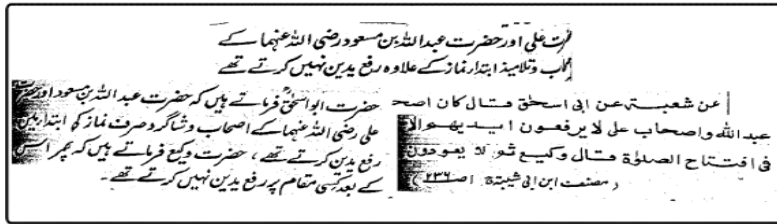 حضرت علی اور حضرت عبداللہ بن مسعود رضی اللہ عنہما کے
اصحاب و تلامیذ ابتداء نماز کے علاوہ رفع یدین نہیں کرتے تھے
عن شعبة عن ابی اسحٰق قال کان اصحـ
عبد اللہ واصحاب علی لا یرفعون ایدیھم الا
فی افتتاح الصلوٰة قال وکیع ثم لا یعودون
(مصنف ابن ابی شیبة ج۱ ص۲۳۶)
حضرت ابو اسحٰقؒ فرماتے ہیں کہ حضرت عبد اللہ بن مسعود اور حضرت
علی رضی اللہ عنہما کے اصحاب و شاگرد صرف نماز کی ابتداء میں
رفع یدین کرتے تھے، حضرت وکیع فرماتے ہیں کہ پھر اس
کے بعد کسی مقام پر رفع یدین نہیں کرتے تھے۔